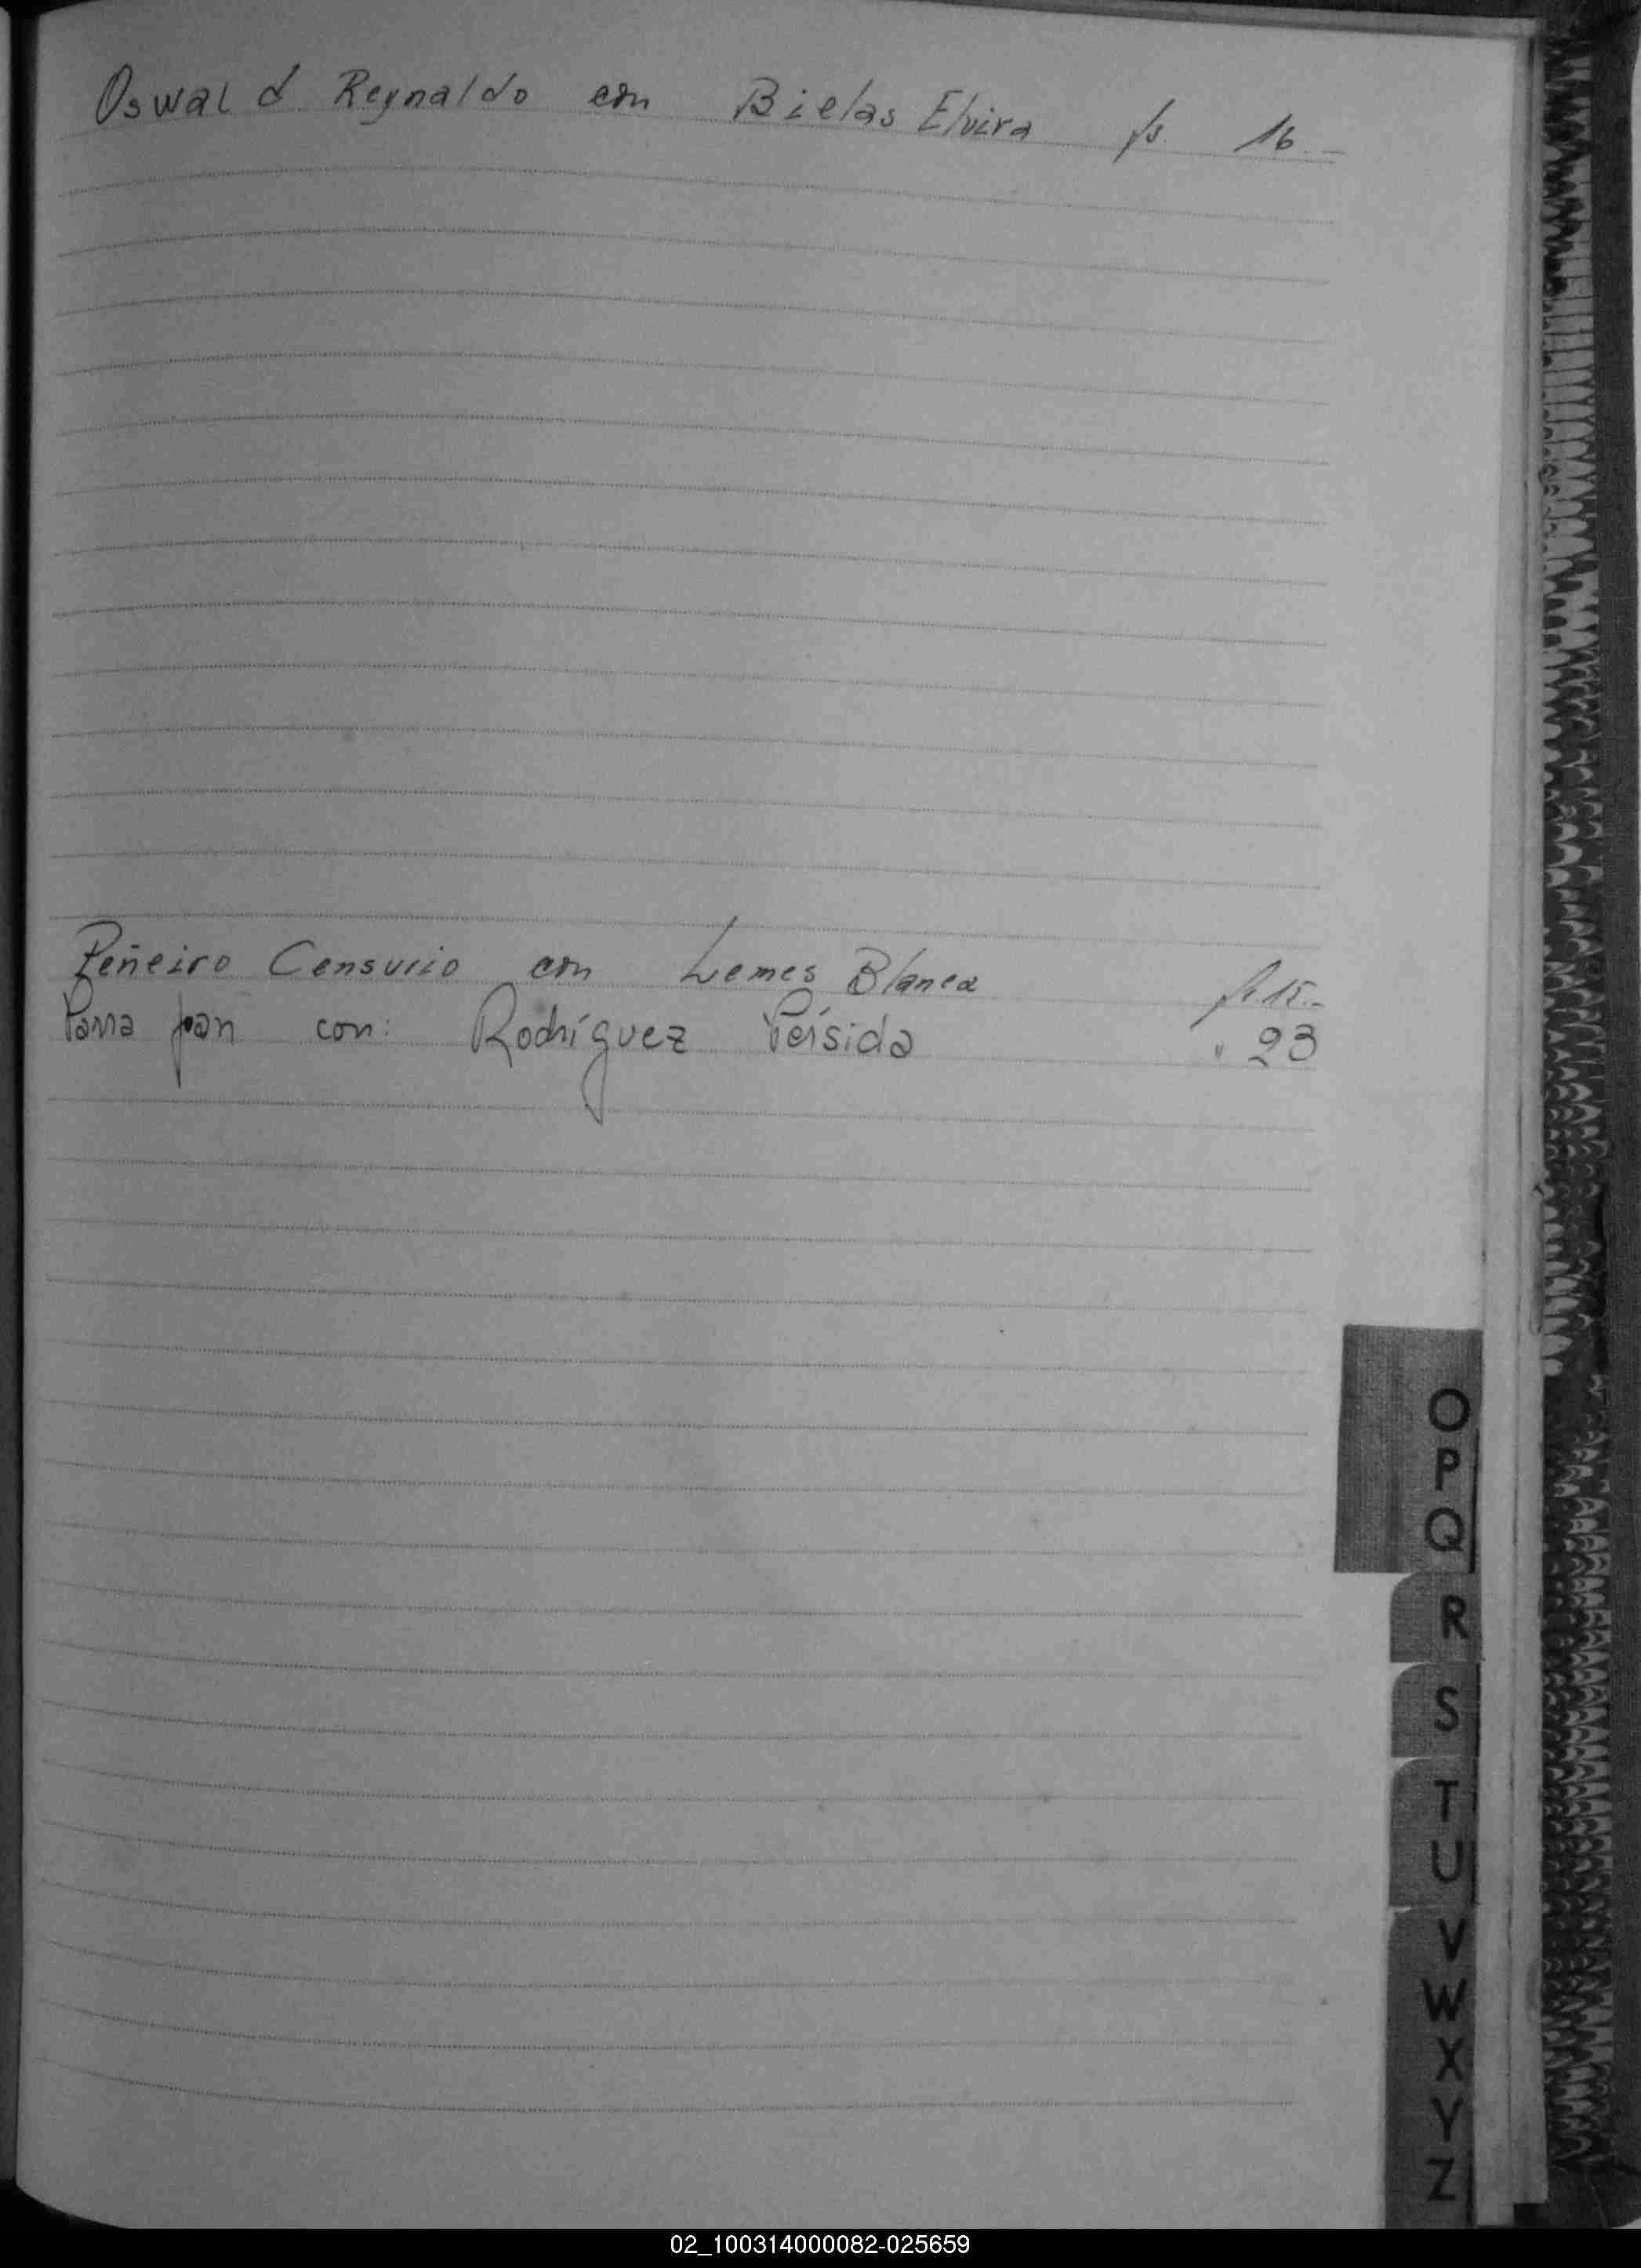 Oswald Reynaldo con Bielas Elvira fs. 16.-
Peñeiro Censurio con Lemes Blanca fs. 15.-
Parra Juan con: Rodríguez Pérsida " 23
O
P
Q
R
S
T
U
V
W
X
Y
Z
02_100314000082-025659